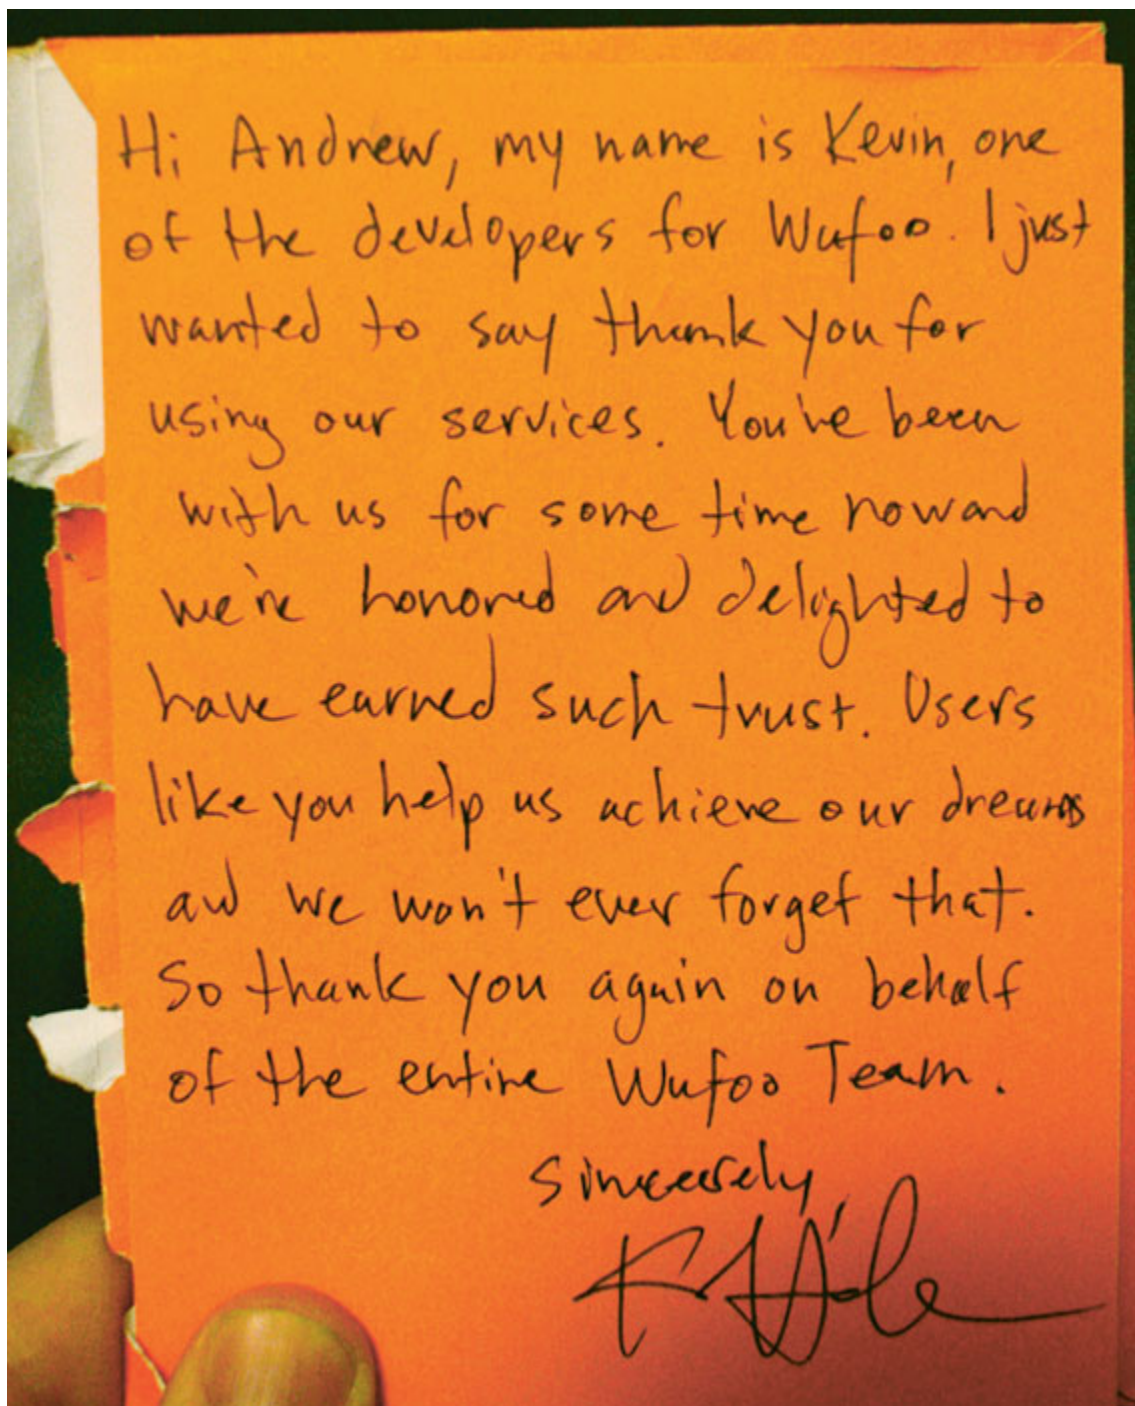 Hi Andrew, my name is Kevin, one
of the developers for Wufoo. I just
wanted to say thank you for
using our services. You've been
with us for some time now and
we're honored and delighted to
have earned such trust. Users
like you help us achieve our dreams
and we won't ever forget that.
So thank you again on behalf
of the entire Wufoo Team.
Sincerely,